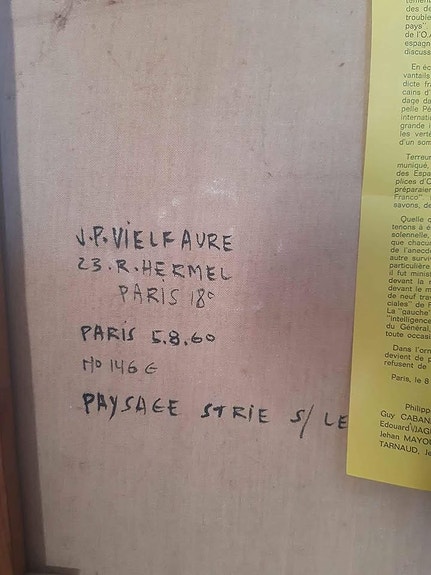 J.P. VIELFAURE
23. R. HERMEL
PARIS 18e
PARIS 5.8.60
No 146 G
PAYSAGE STRIE S/ LE
des de
trouble
pays".
de l'O.
espagn
discuss
En éc
vantails
dicte fr
cains d'
dage da
pelle Pé
internati
grande i
les verte
d'un som
Terreur
muniqué,
des Espa
plices d'O
préparaien
Franco".
savons, de
Quelle q
tenons à é
solennelle,
que chacu
de l'anecdo
autre surviv
particulière
il fut minist
devant la r
devant le m
de neuf trav
ciales" de F
La "gauche"
"intelligence
du Général,
toute occasi
Dans l'orn
devient de p
refusent de
Paris, le 8
Philipp
Guy CABAN
Edouard JAG
Jehan MAYOU
TARNAUD, Je